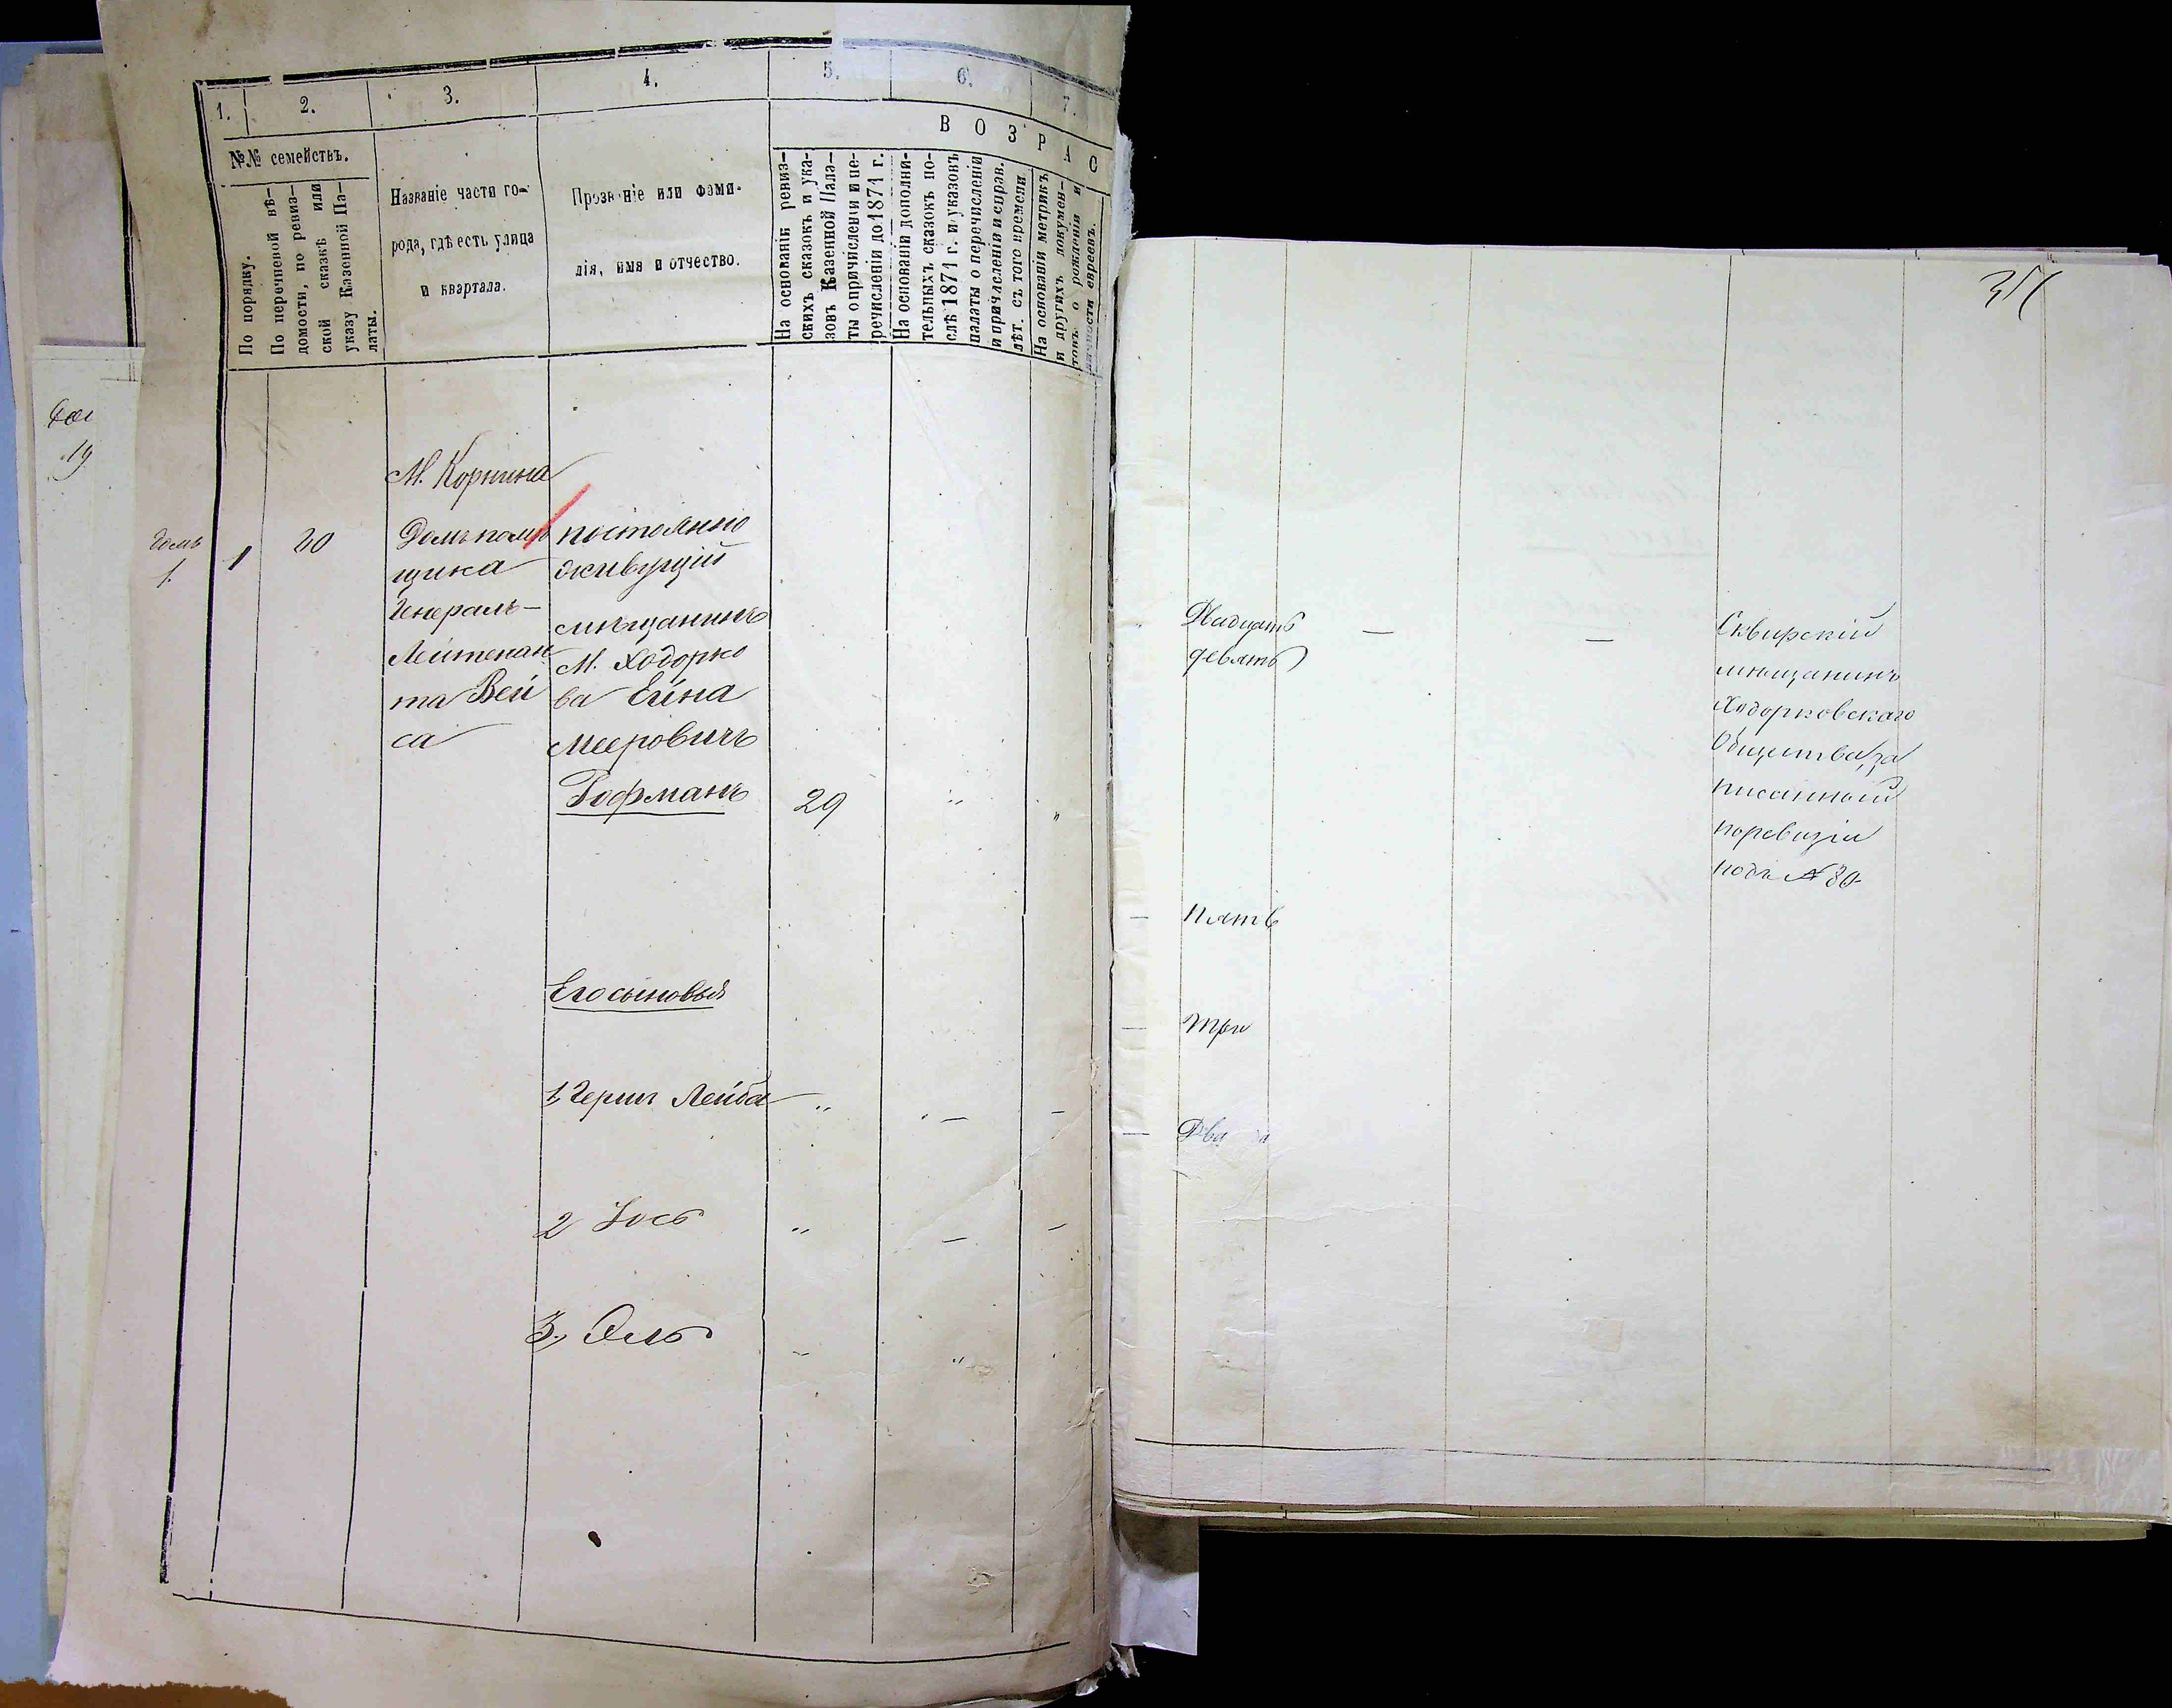 1.
2.
3.
4.
5.
6.
7.
В О З Р А С
№№ семействъ.
По порядку.
По перечневой вѣ-
домости, по ревиз-
ской сказкѣ или
указу Казенной Па-
латы.
Названіе части го-
рода, гдѣ есть улица
и квартала.
Прозваніе или фами-
лія, имя и отчество.
На основаніи ревиз-
скихъ сказокъ и ука-
зовъ Казенной Пала-
ты о причисленіи и пе-
речисленіи до 1871 г.
На основаніи дополни-
тельныхъ сказокъ по-
слѣ 1871 г. и указовъ
палаты о перечисленіи
и причисленіи и справ.
лѣт. съ того времени.
На основаніи метрикъ
и другихъ докумен-
товъ о рожденіи и
личности евреевъ.
19
М. Корнина
домъ
1.
1
Домъ помѣ
щика
Генералъ-
Лейтенан
та Вей
са
постоянно
живущій
мѣщанинъ
М. Ходорко
ва Ейна
Мееровичъ
Гофманъ
29
Его сыновья
1, Герш Лейба
2 Іось
3,
девять
Пять
три
Два
Сквирскій
мѣщанинъ
Ходорковскаго
Общества за
писанный
по ревизіи
подъ №